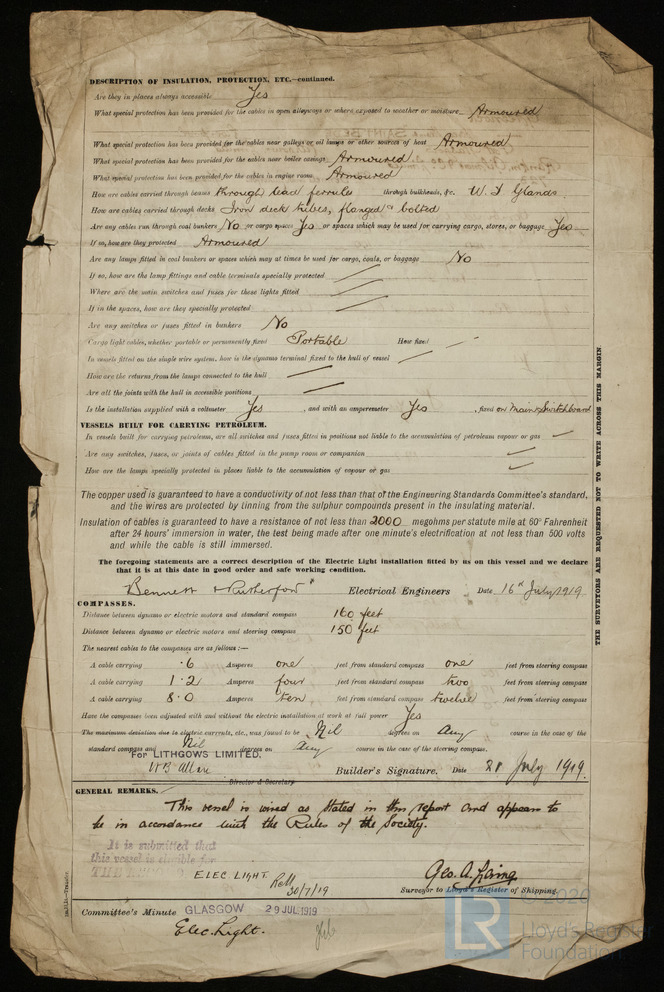 DESCRIPTION OF INSULATION, PROTECTION, ETC.—continued.
Are they in places always accessible Yes
What special protection has been provided for the cables in open alleyways or where exposed to weather or moisture Armoured
What special protection has been provided for the cables near galleys or oil lamps or other sources of heat Armoured
What special protection has been provided for the cables near boiler casings Armoured
What special protection has been provided for the cables in engine room Armoured
How are cables carried through beams through lead ferrules through bulkheads, &c. W.T Glands
How are cables carried through decks Iron deck tubes, flanged & bolted
Are any cables run through coal bunkers No or cargo spaces Yes or spaces which may be used for carrying cargo, stores, or baggage Yes
If so, how are they protected Armoured
Are any lamps fitted in coal bunkers or spaces which may at times be used for cargo, coals, or baggage No
If so, how are the lamp fittings and cable terminals specially protected
Where are the main switches and fuses for these lights fitted
If in the spaces, how are they specially protected
Are any switches or fuses fitted in bunkers No
Cargo light cables, whether portable or permanently fixed Portable How fixed
In vessels fitted on the single wire system, how is the dynamo terminal fixed to the hull of vessel
How are the returns from the lamps connected to the hull
Are all the joints with the hull in accessible positions
Is the installation supplied with a voltmeter Yes , and with an amperemeter Yes , fixed on main switchboard
VESSELS BUILT FOR CARRYING PETROLEUM.
In vessels built for carrying petroleum, are all switches and fuses fitted in positions not liable to the accumulation of petroleum vapour or gas
Are any switches, fuses, or joints of cables fitted in the pump room or companion
How are the lamps specially protected in places liable to the accumulation of vapour or gas
The copper used is guaranteed to have a conductivity of not less than that of the Engineering Standards Committee's standard,
and the wires are protected by tinning from the sulphur compounds present in the insulating material.
Insulation of cables is guaranteed to have a resistance of not less than 2000 megohms per statute mile at 60° Fahrenheit
after 24 hours' immersion in water, the test being made after one minute's electrification at not less than 500 volts
and while the cable is still immersed.
The foregoing statements are a correct description of the Electric Light installation fitted by us on this vessel and we declare
that it is at this date in good order and safe working condition.
Bennett & Rutherford Electrical Engineers Date 16th July 1919
COMPASSES.
Distance between dynamo or electric motors and standard compass 160 feet
Distance between dynamo or electric motors and steering compass 150 feet
The nearest cables to the compasses are as follows:—
A cable carrying .6 Amperes one feet from standard compass one feet from steering compass
A cable carrying 1.2 Amperes four feet from standard compass two feet from steering compass
A cable carrying 8.0 Amperes ten feet from standard compass twelve feet from steering compass
Have the compasses been adjusted with and without the electric installation at work at full power Yes
The maximum deviation due to electric currents, etc., was found to be Nil degrees on any course in the case of the
standard compass and Nil degrees on any course in the case of the steering compass.
FOR LITHGOWS LIMITED,
Builder's Signature. Date 21 July 1919.
Director & Secretary
GENERAL REMARKS.
This vessel is wired as stated in this report and appears to
be in accordance with the Rules of the Society.
It is submitted that
this vessel is eligible for
THE RECORD
ELEC LIGHT 30/7/19
Geo. A. Laing
Surveyor to Lloyd's Register of Shipping.
Committee's Minute GLASGOW 29 JUL 1919
Elec. Light.
THE SURVEYORS ARE REQUESTED NOT TO WRITE ACROSS THIS MARGIN.
© 2020
LR
Lloyd's Register
Foundation